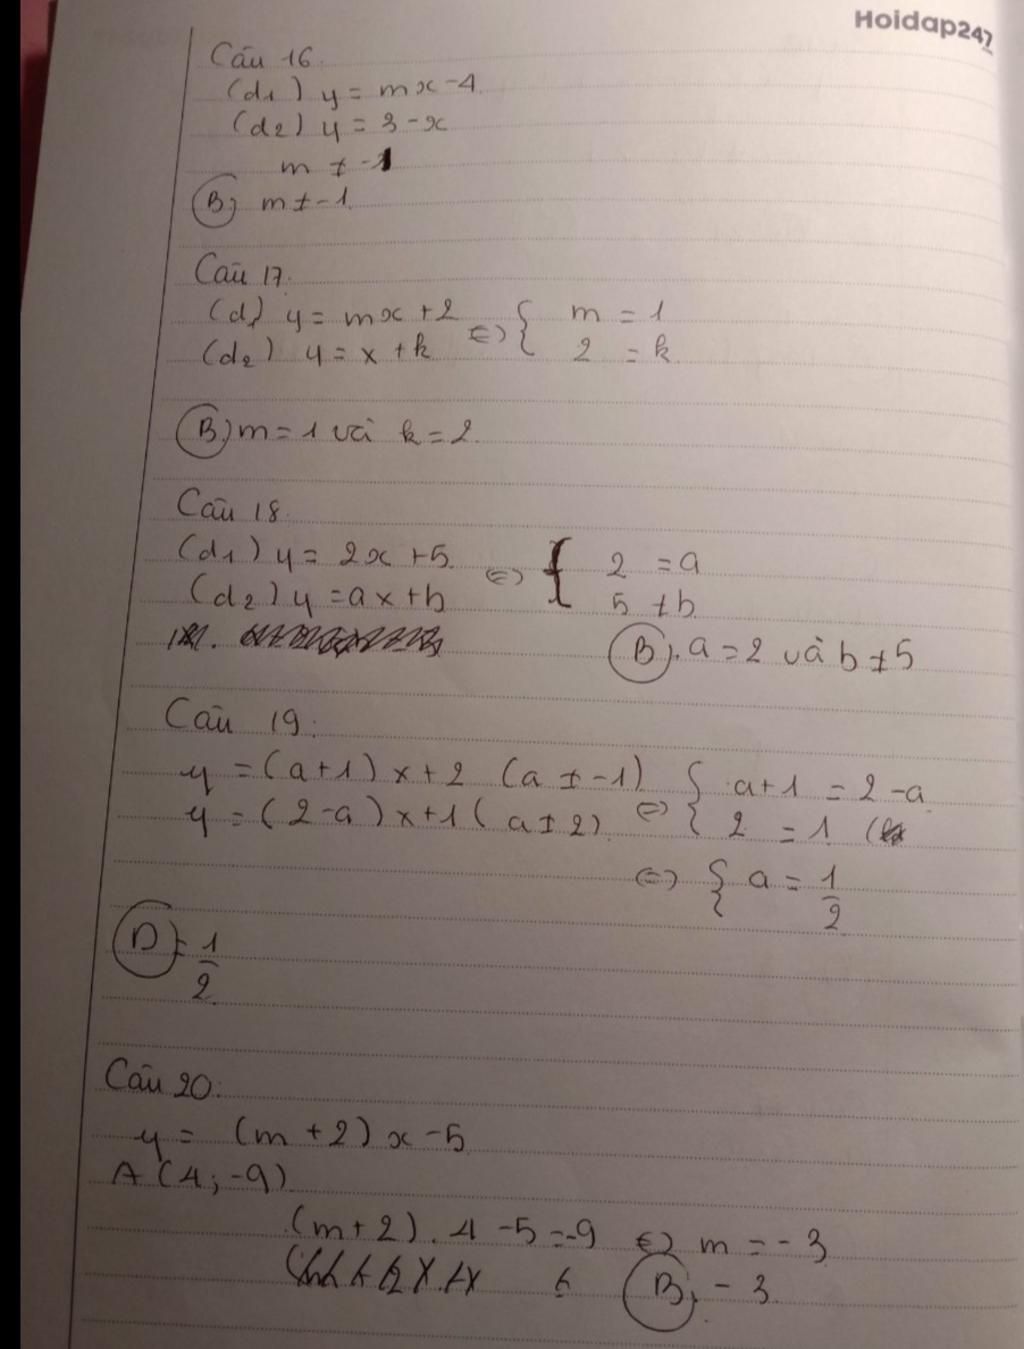 Hoidap247
Câu 16.
(d1) y = mx - 4
(d2) y = 3 - x
m ≠ -1
B) m ≠ -1
Câu 17.
(d) y = mx + 2 <=> { m = 1
(d2) y = x + k 2 = k
B) m = 1 và k = 2.
Câu 18.
(d1) y = 2x + 5 <=> { 2 = a
(d2) y = ax + b 5 ≠ b
B). a = 2 và b ≠ 5
Câu 19:
y = (a+1)x + 2 (a ≠ -1) <=> { a + 1 = 2 - a
y = (2-a)x + 1 (a ≠ 2) 2 = 1 (
<=> { a = 1/2
D) 1/2
Câu 20:
y = (m + 2) x - 5
A (4; -9)
(m + 2) . 4 - 5 = -9 <=> m = -3
B, -3